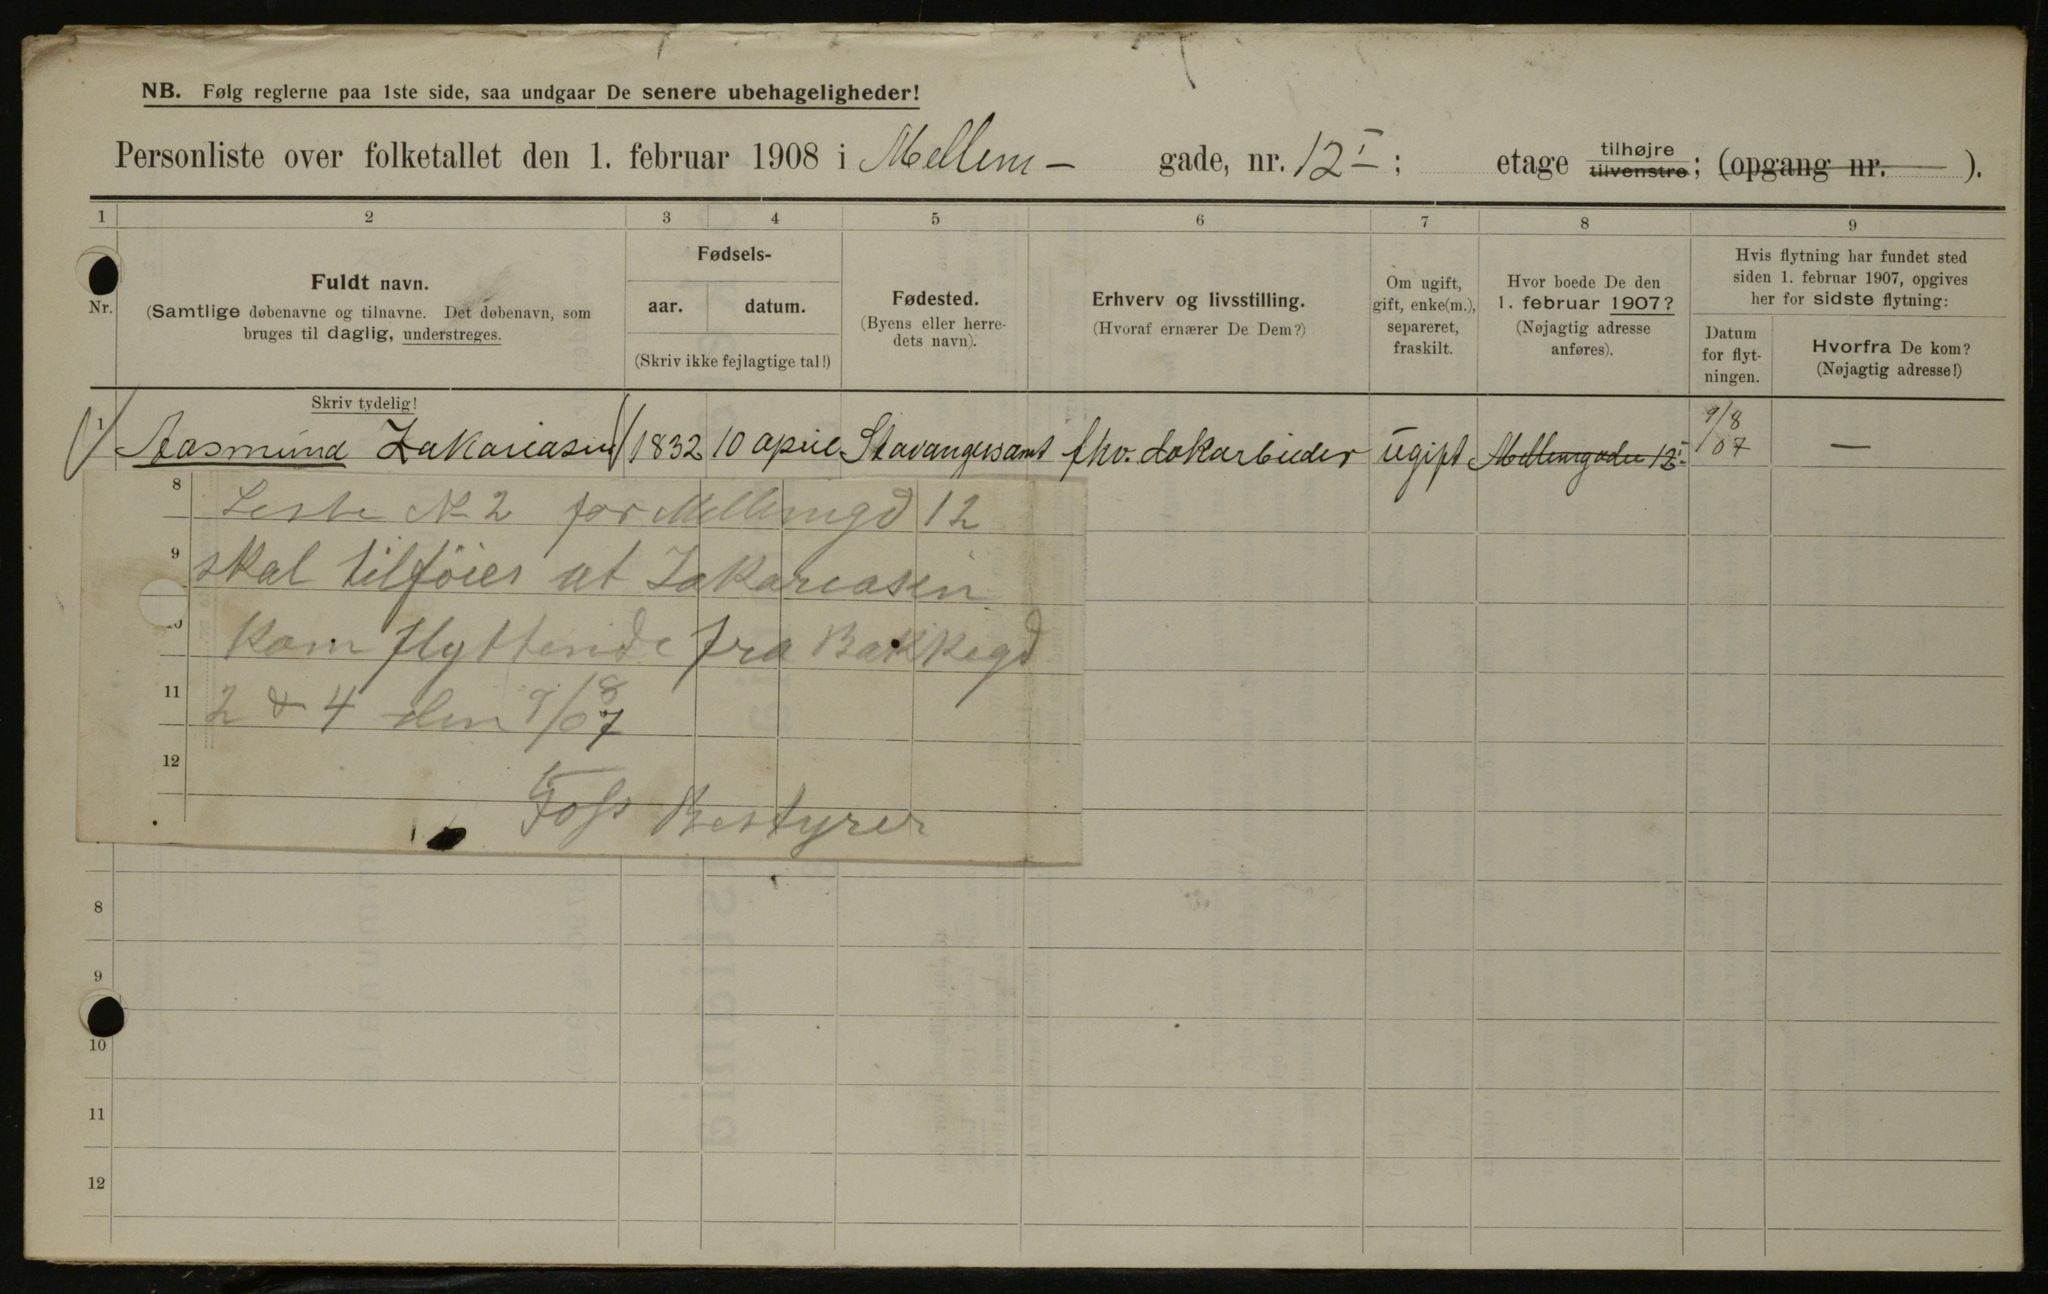 NB. Følg reglerne paa 1ste side, saa undgaar De senere ubehageligheder!
Personliste over folketallet den 1. februar 1908 i Mellem- gade, nr. 12 I; etage tilhøjre tilvenstre; (opgang nr. ).
1 2 3 4 5 6 7 8 9
Nr.
Fuldt navn.
(Samtlige døbenavne og tilnavne. Det døbenavn, som
bruges til daglig, understreges.
Skriv tydelig!
Fødsels-
aar. datum.
(Skriv ikke fejlagtige tal!)
Fødested.
(Byens eller herre-
dets navn).
Erhverv og livsstilling.
(Hvoraf ernærer De Dem?)
Om ugift,
gift, enke(m.),
separeret,
fraskilt.
Hvor boede De den
1. februar 1907?
(Nøjagtig adresse
anføres).
Hvis flytning har fundet sted
siden 1. februar 1907, opgives
her for sidste flytning:
Datum
for flyt-
ningen.
Hvorfra De kom?
(Nøjagtig adresse!)
1 Aasmund Zakariasen 1832 10 april Stavangersamt fhv. dokarbeider ugift Mellemgaden 12 I 9/8 07 —
8 Leste No 2 for Mellemgd 12
9 skal tilföies at Zakariasen
10 kom flyttende fra Bakkegd
11 2 & 4 den 9/8 07
12
Foss Bestyrer
8
9
10
11
12